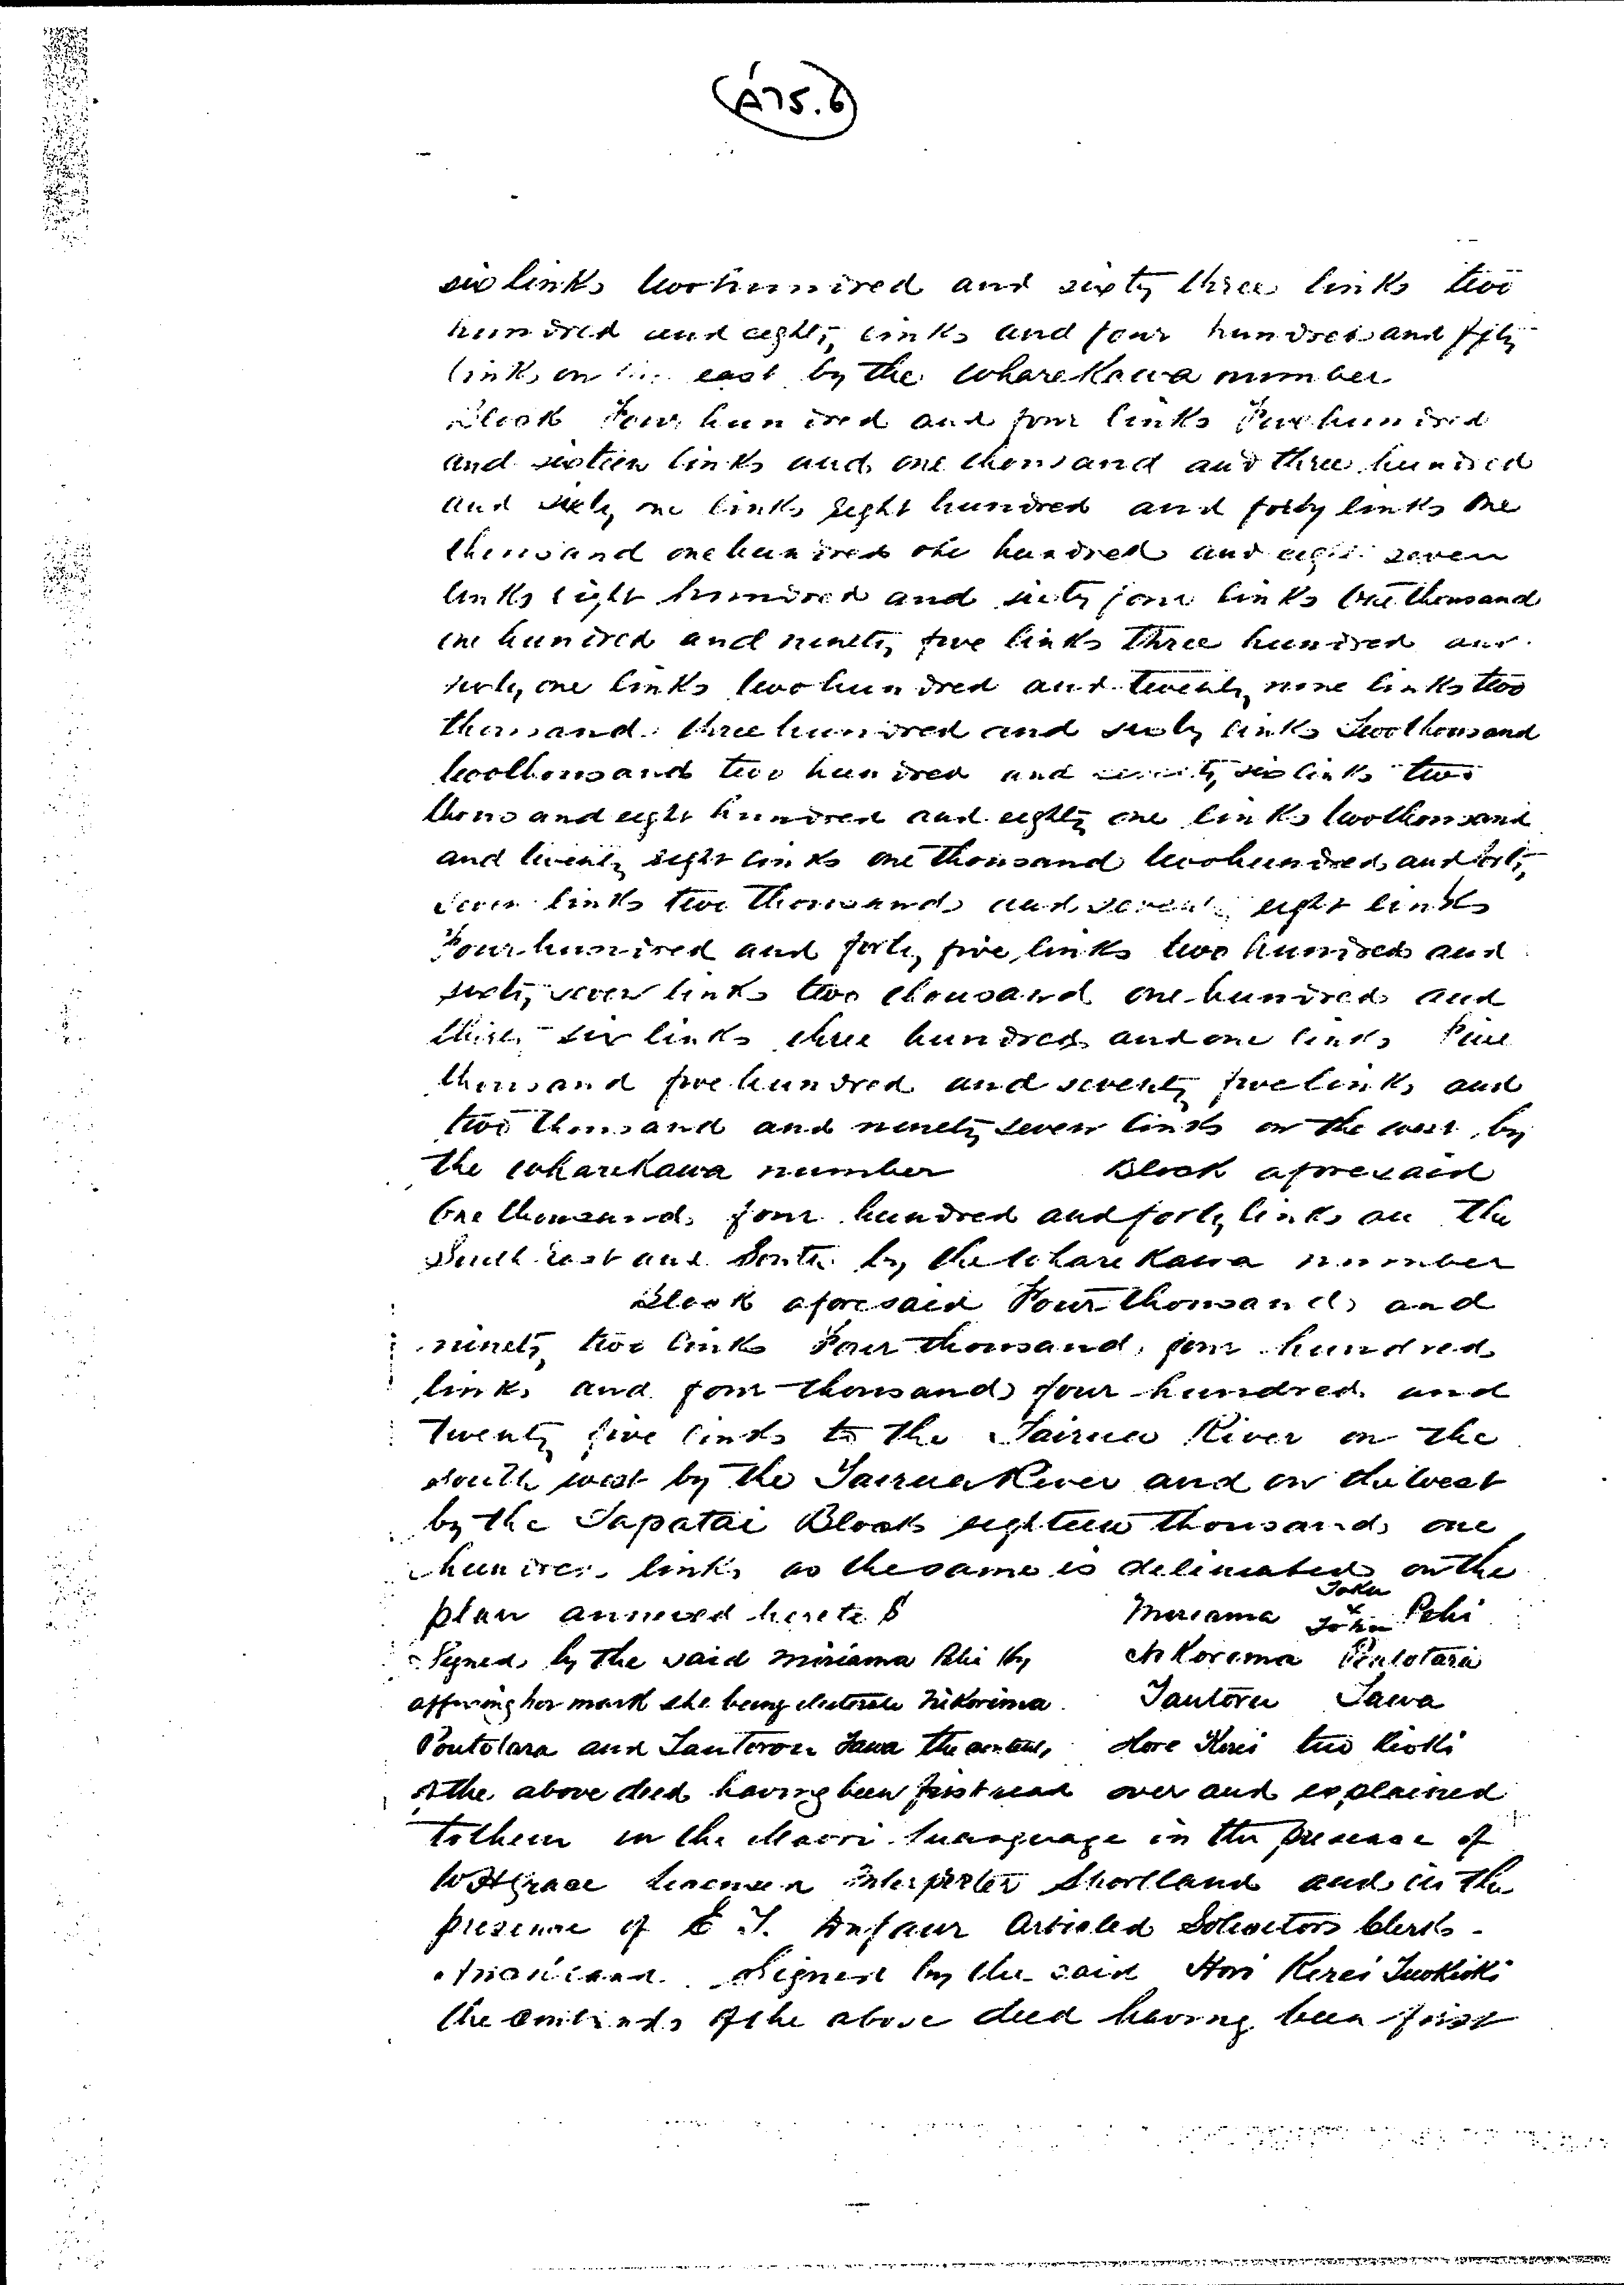 A75.6
six links two hundred and sixty three links two
hundred and eighty links and four hundred and fifty
links on the east by the Wharekawa number
Block Four hundred and four links Five hundred
and sixteen links and one thousand and three hundred
and sixty one links Eight hundred and forty links One
thousand one hundred one hundred and eighty seven
links eight hundred and sixty four links One thousand
one hundred and ninety five links three hundred and
sixty one links two hundred and twenty nine links two
thousand three hundred and sixty links Two thousand
two thousand two hundred and seventy six links two
thousand eight hundred and eighty one links two thousand
and twenty eight links one thousand two hundred and forty
seven links two thousand and seventy eight links
Four hundred and forty five links two hundred and
sixty seven links two thousand one hundred and
thirty six links three hundred and one links Five
thousand five hundred and seventy five links and
two thousand and ninety seven links on the west by
the Wharekawa number Block aforesaid
One thousand four hundred and forty links on the
South East and South by the Wharekawa number
Block aforesaid Four thousand and
ninety two links Four thousand four hundred
links and four thousand four hundred and
Twenty five links to the Tairua River on the
South west by the Tairua River and on the West
by the Tapatai Block eighteen thousand one
hundred links as the same is delineated on the
plan annexed hereto $ Miriama Tohu x Tohu Pehi
Signed by the said Miriama Pehi by Nikorima Poutotara
affixing her mark she being illiterate Nikorima Tautoru Tawa
Poutotara and Tautoru Tawa the contents Hore Kerei Tuo Kioki
of the above deed having been first read over and explained
to them in the Maori language in the presence of
W H Grace Licensed Interpreter Shortland and in the
presence of E T Dufaur Articled Solicitors Clerk
Auckland. Signed by the said Hori Kerei Tuokioki
the contents of the above deed having been first